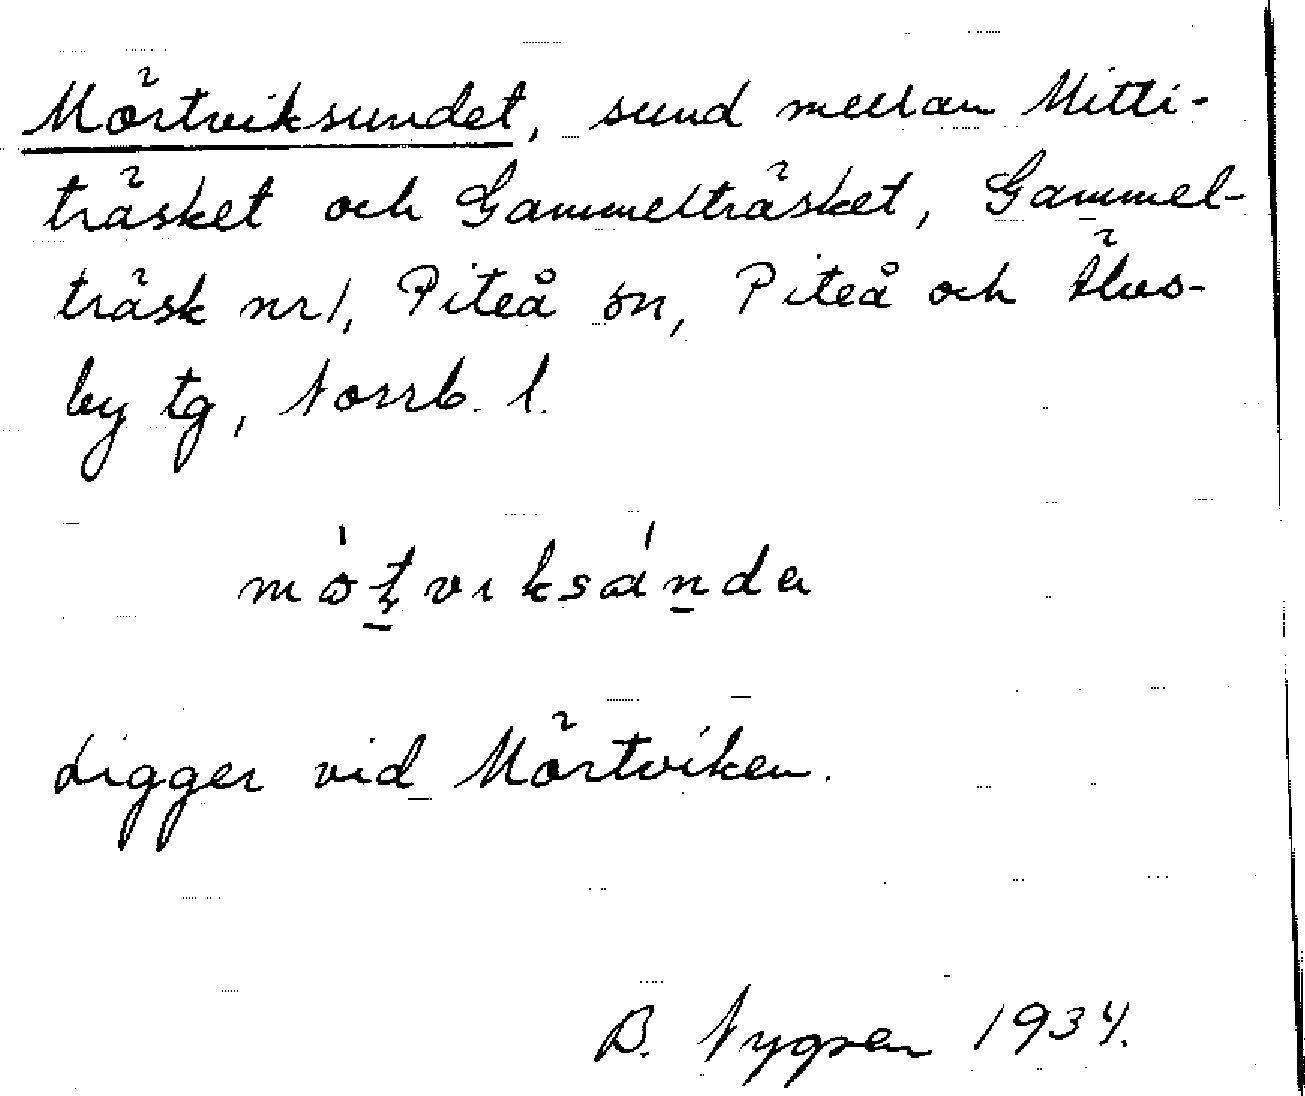 Mörtviksundet, sund mellan Mitti-
träsket och Gammelträsket, Gammel-
träsk nr 1, Piteå sn, Piteå och Älvs-
by tg, Norrb. l.
Ligger vid Mörtviken.
B. Nygren 1934.